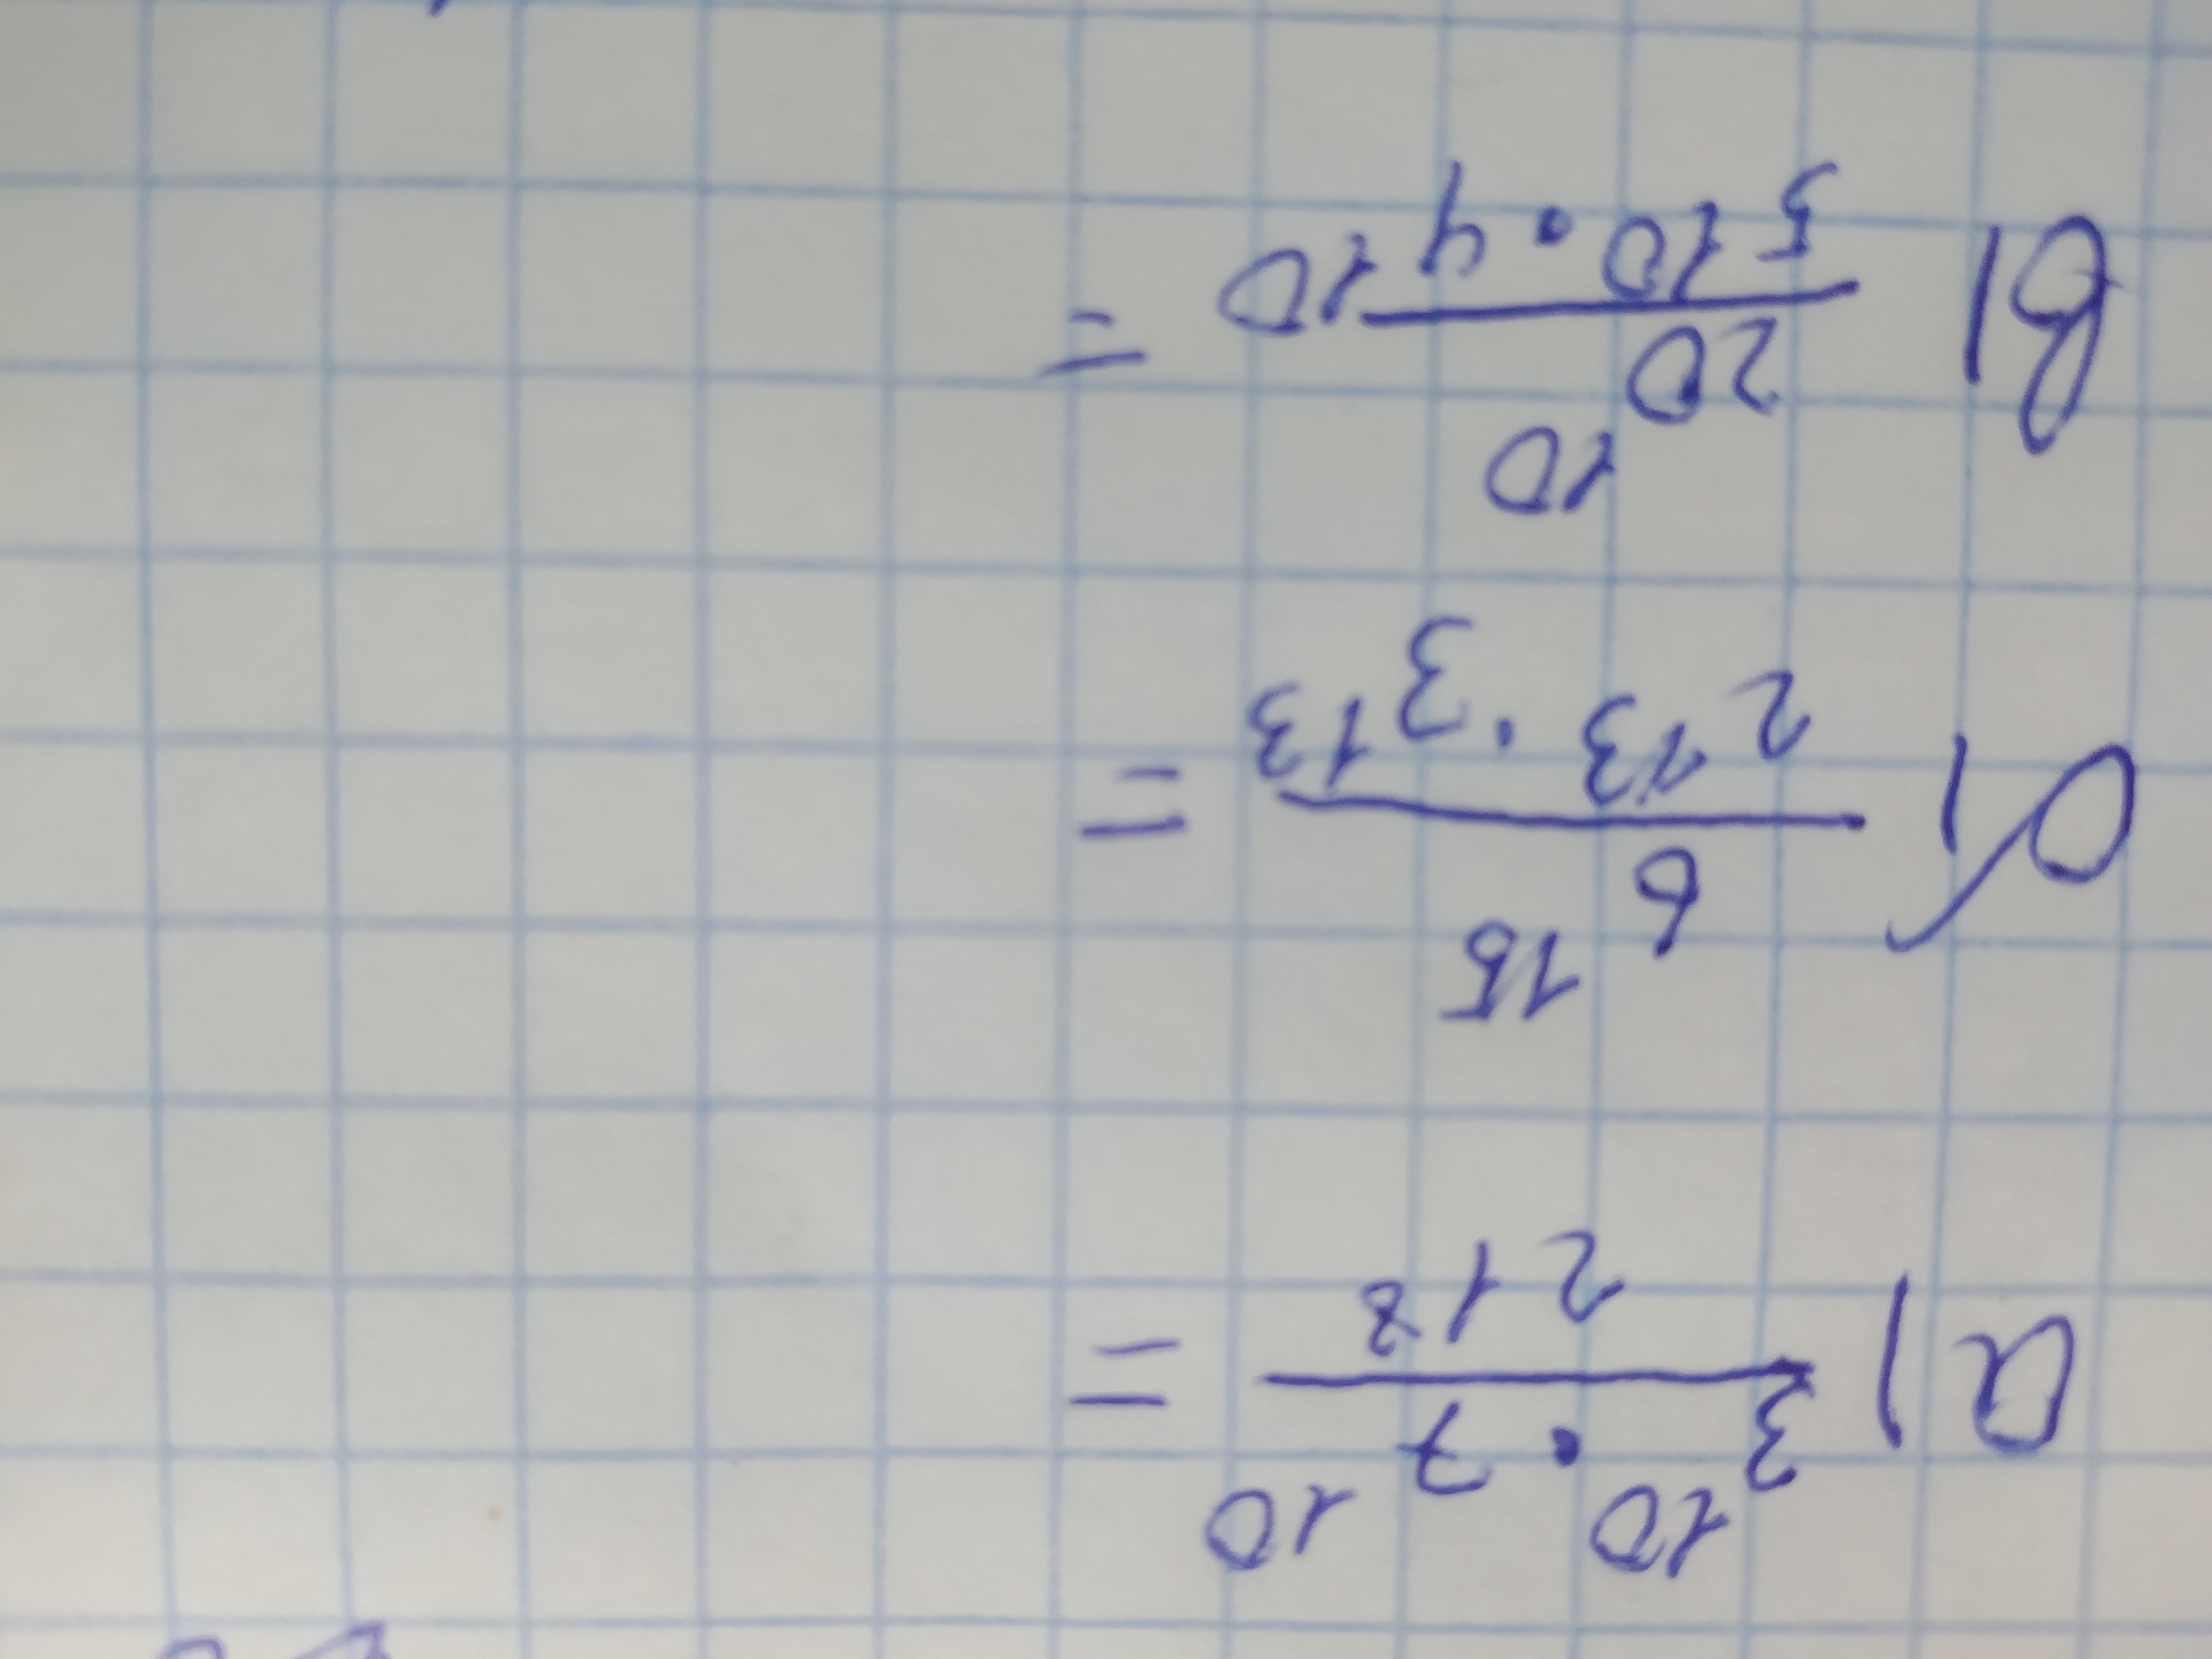 а) 3¹⁰ · 7¹⁰ / 21⁸ =
б) 6¹⁵ / 2¹³ · 3¹³ =
в) 20¹⁰ / 5¹⁰ · 4¹⁰ =